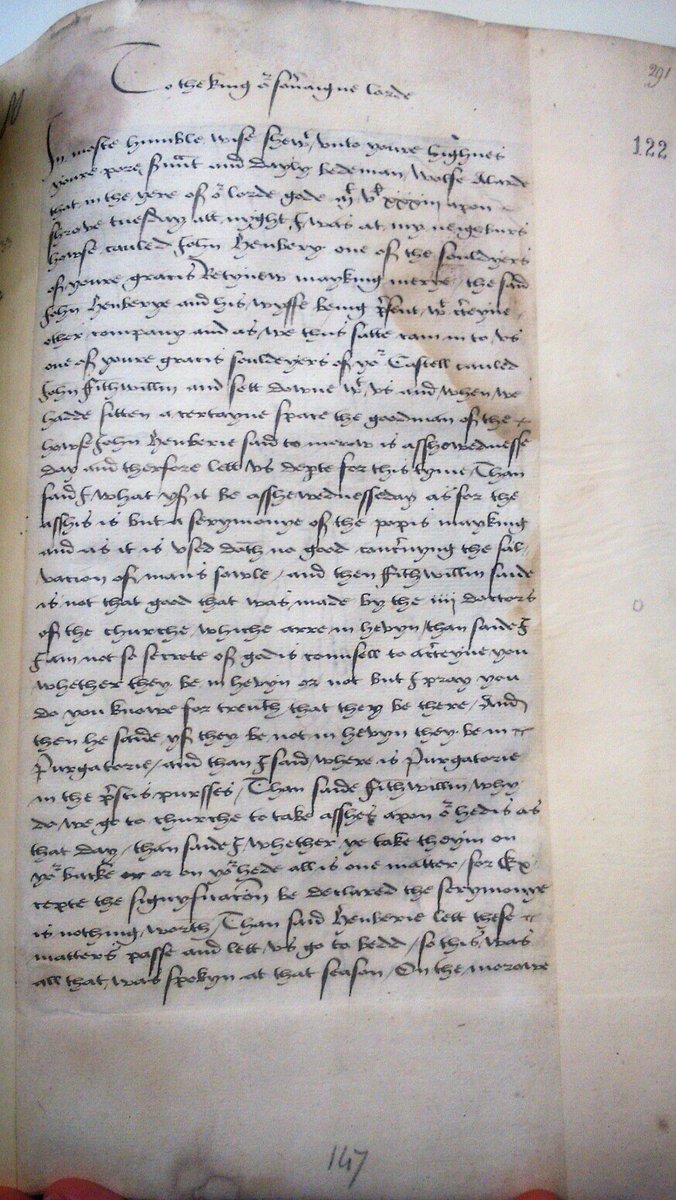 To the king or sov'aigne lorde
291
122
In moste humble wise shew' vnto youre highnes
youre pore s'unt and dayly bedeman, Wolfe Alarde
that in the yere of or lorde gode mł vc xxxiii apon
shrove tuesday att nyght I was at my neigeburs
howse cauled John Henbery one of the souldyers
of youre gracis Retynew mayking merye / the said
John Henberye and his wyffe being p'sent wt c'teyne
other company and as we thus satte cam in to vs
one of youre gracis souldeyers of yor Castell cauled
John ffithwillm and sett downe wt vs and when we
hadde sitten a certayne space the goodman of the
howse John Henberie said to morow is asshewednesse
day and therfore lett vs depte for this tyme / Than
said I what yf it be asshewednesseday as for the
asshis is but a serymonye of the popis mayking
and as it is vsed doth no good conc'nyng the sal-
vation of mans sowle / and then ffithwillm saide
is not that good that was made by the iiij doctors
of the churche whiche arre in hevyn / than saide I
I am not so secrete of godis counsell to ac'teyne you
whether they be in hevyn or not but I pray you
do you knowe for treuth that they be there / And
then he saide yf they be not in hevyn they be in
Purgatorie / and than I said where is Purgatorie
in the p'stis pursses / Than saide ffithwillm why
do we go to churche to take asshes apon or hedis as
that day / than saide I whether ye take theym on
yor backe or on yor hede all is one matter / for Ex
cepte the signyficacon be declared the serymonye
is nothing worth / Than said Henberie lett these
matters passe and lett vs go to bedd / so this was
all that was spokyn at that season / On the morowe
147